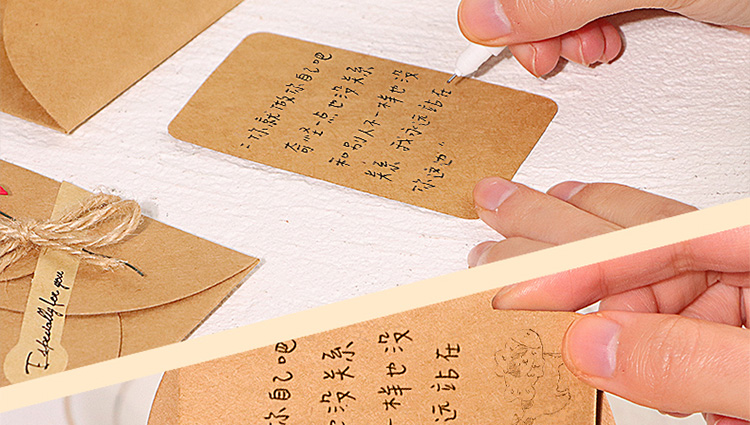 “你就做你自己吧
奇怪一点也没关系
和别人不一样也没
关系 我永远站在
你这边”
Especially for you
你自己吧
也没关系
一样也没
远站在